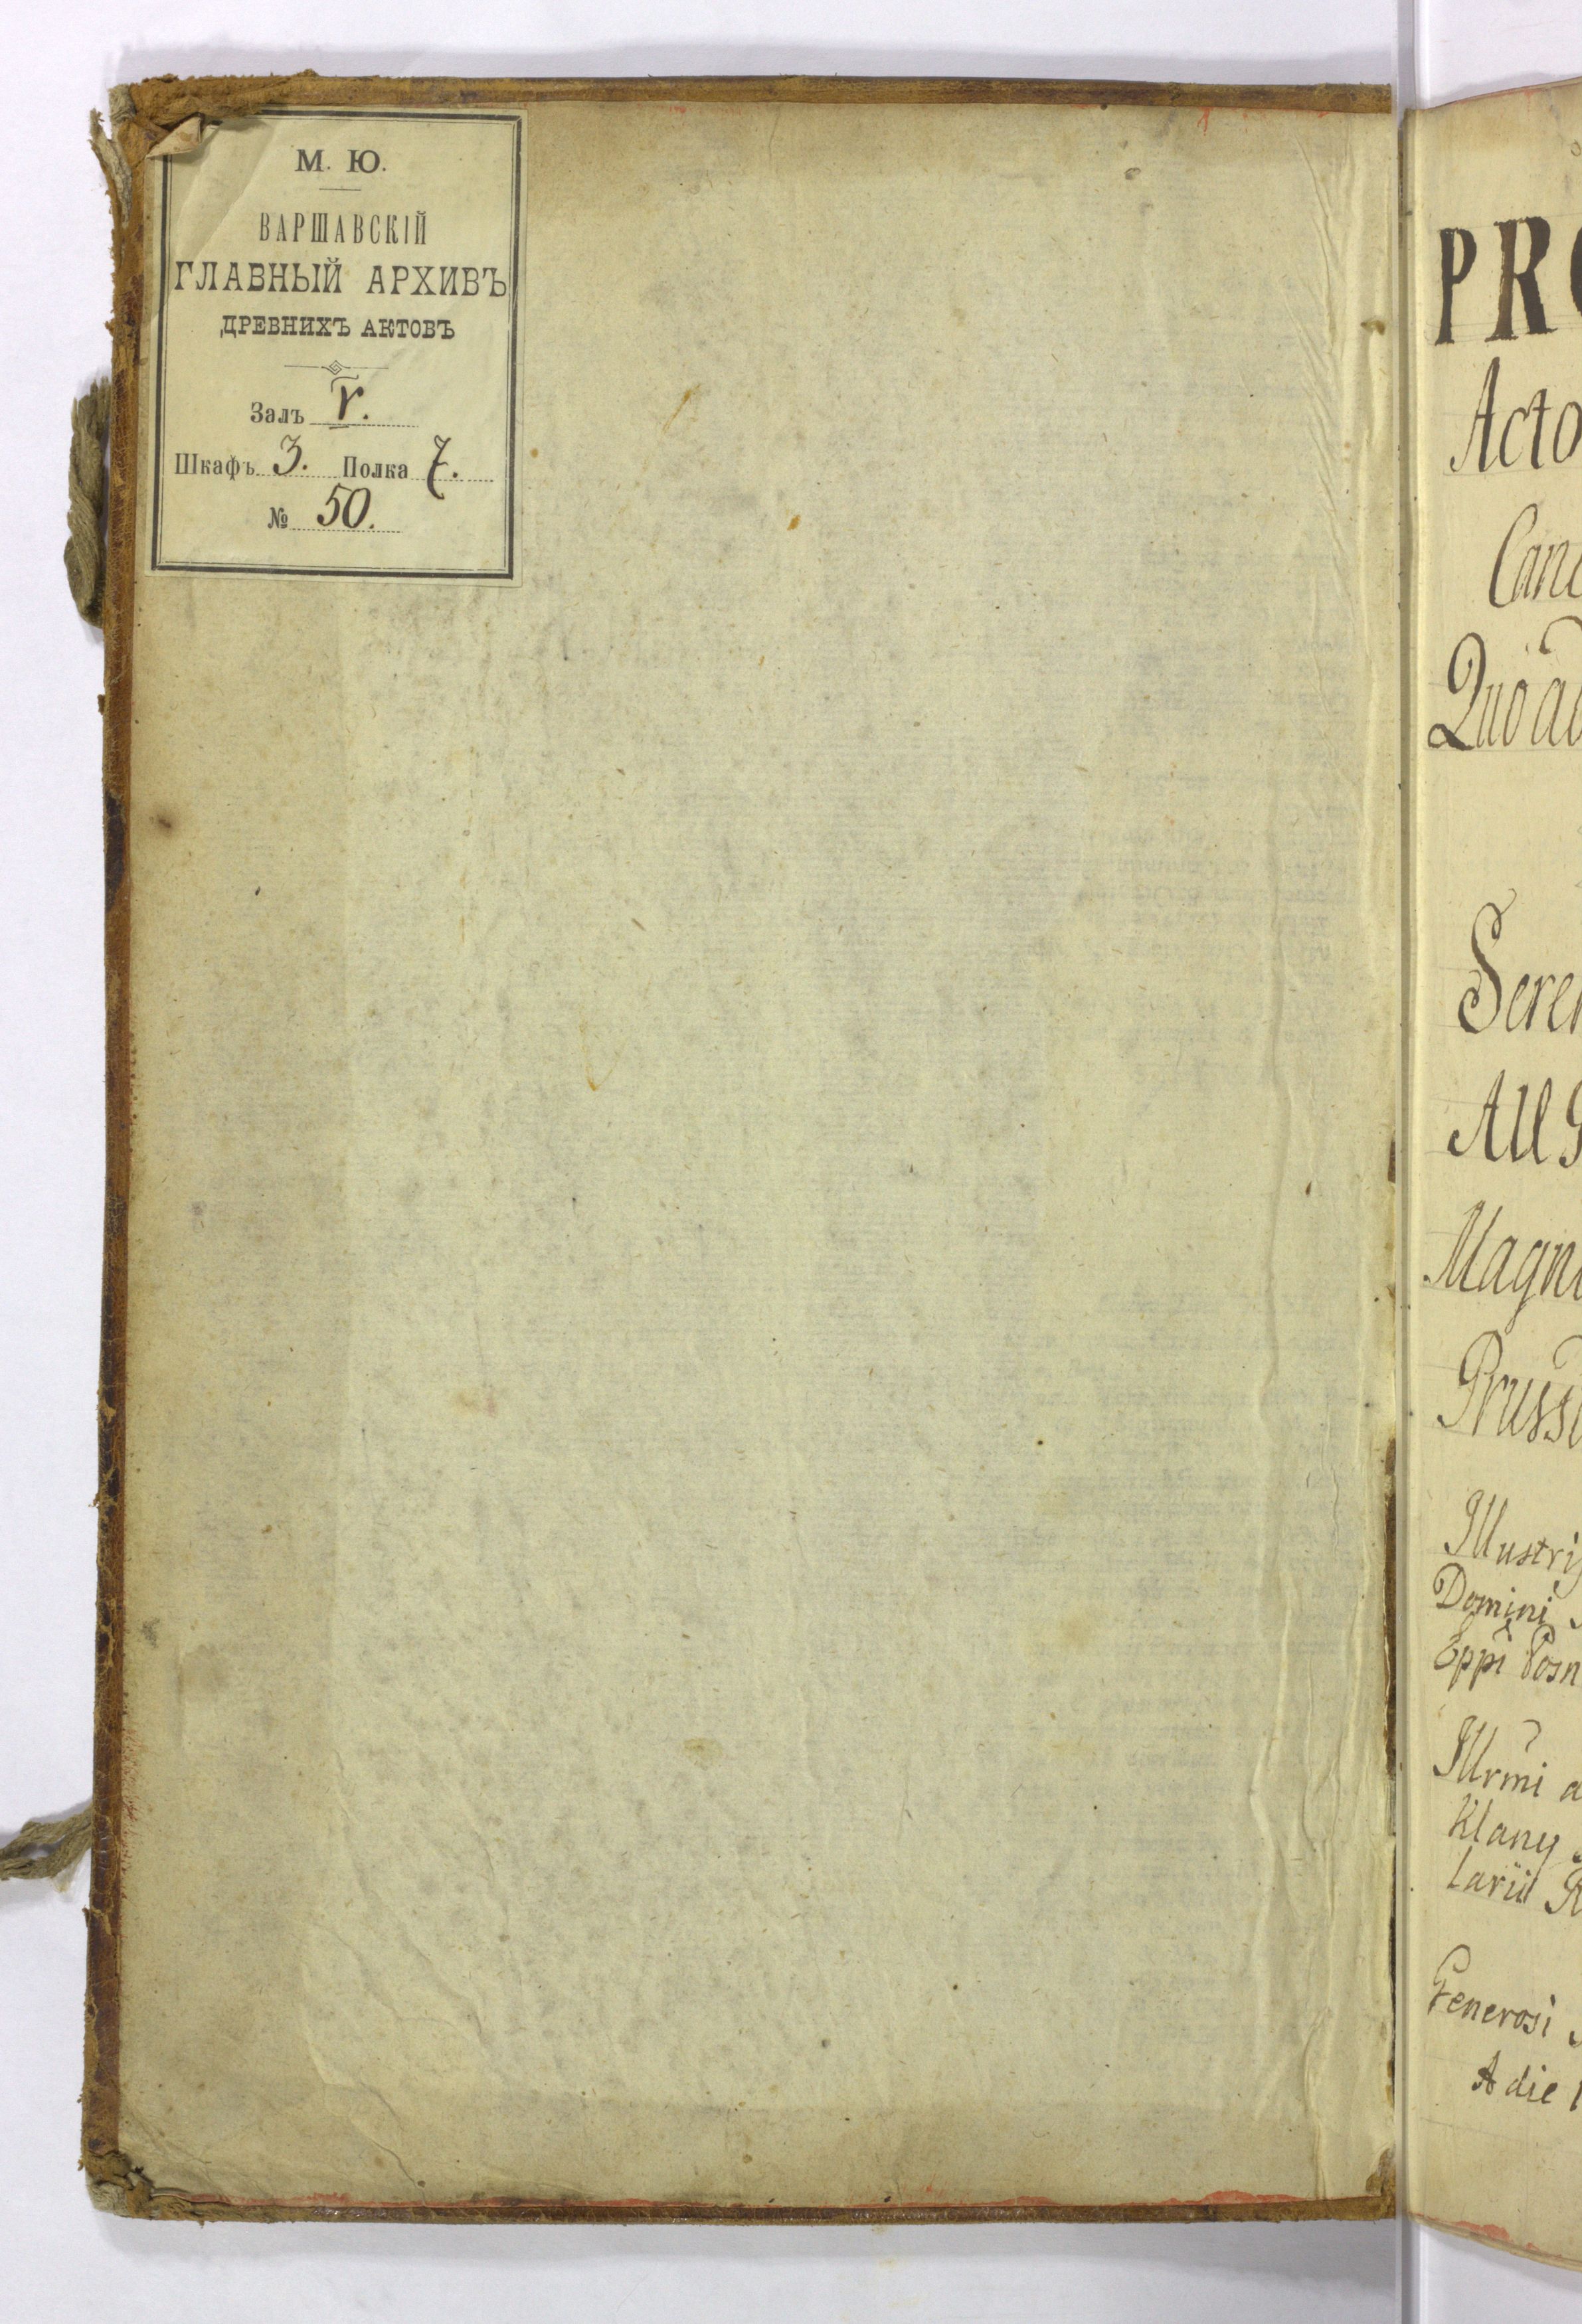 М. Ю.
ВАРШАВСКІЙ
ГЛАВНЫЙ АРХИВЪ
ДРЕВНИХЪ АКТОВЪ
Залъ V.
Шкафъ 3. Полка 7.
№ 50.
PRO
Acto
Canc
Quo ad
Seren
Magni
Prussi
Illustris
Domini
Eppi Posn
Illrmi a
Klany
larii R
Generosi
A die 1